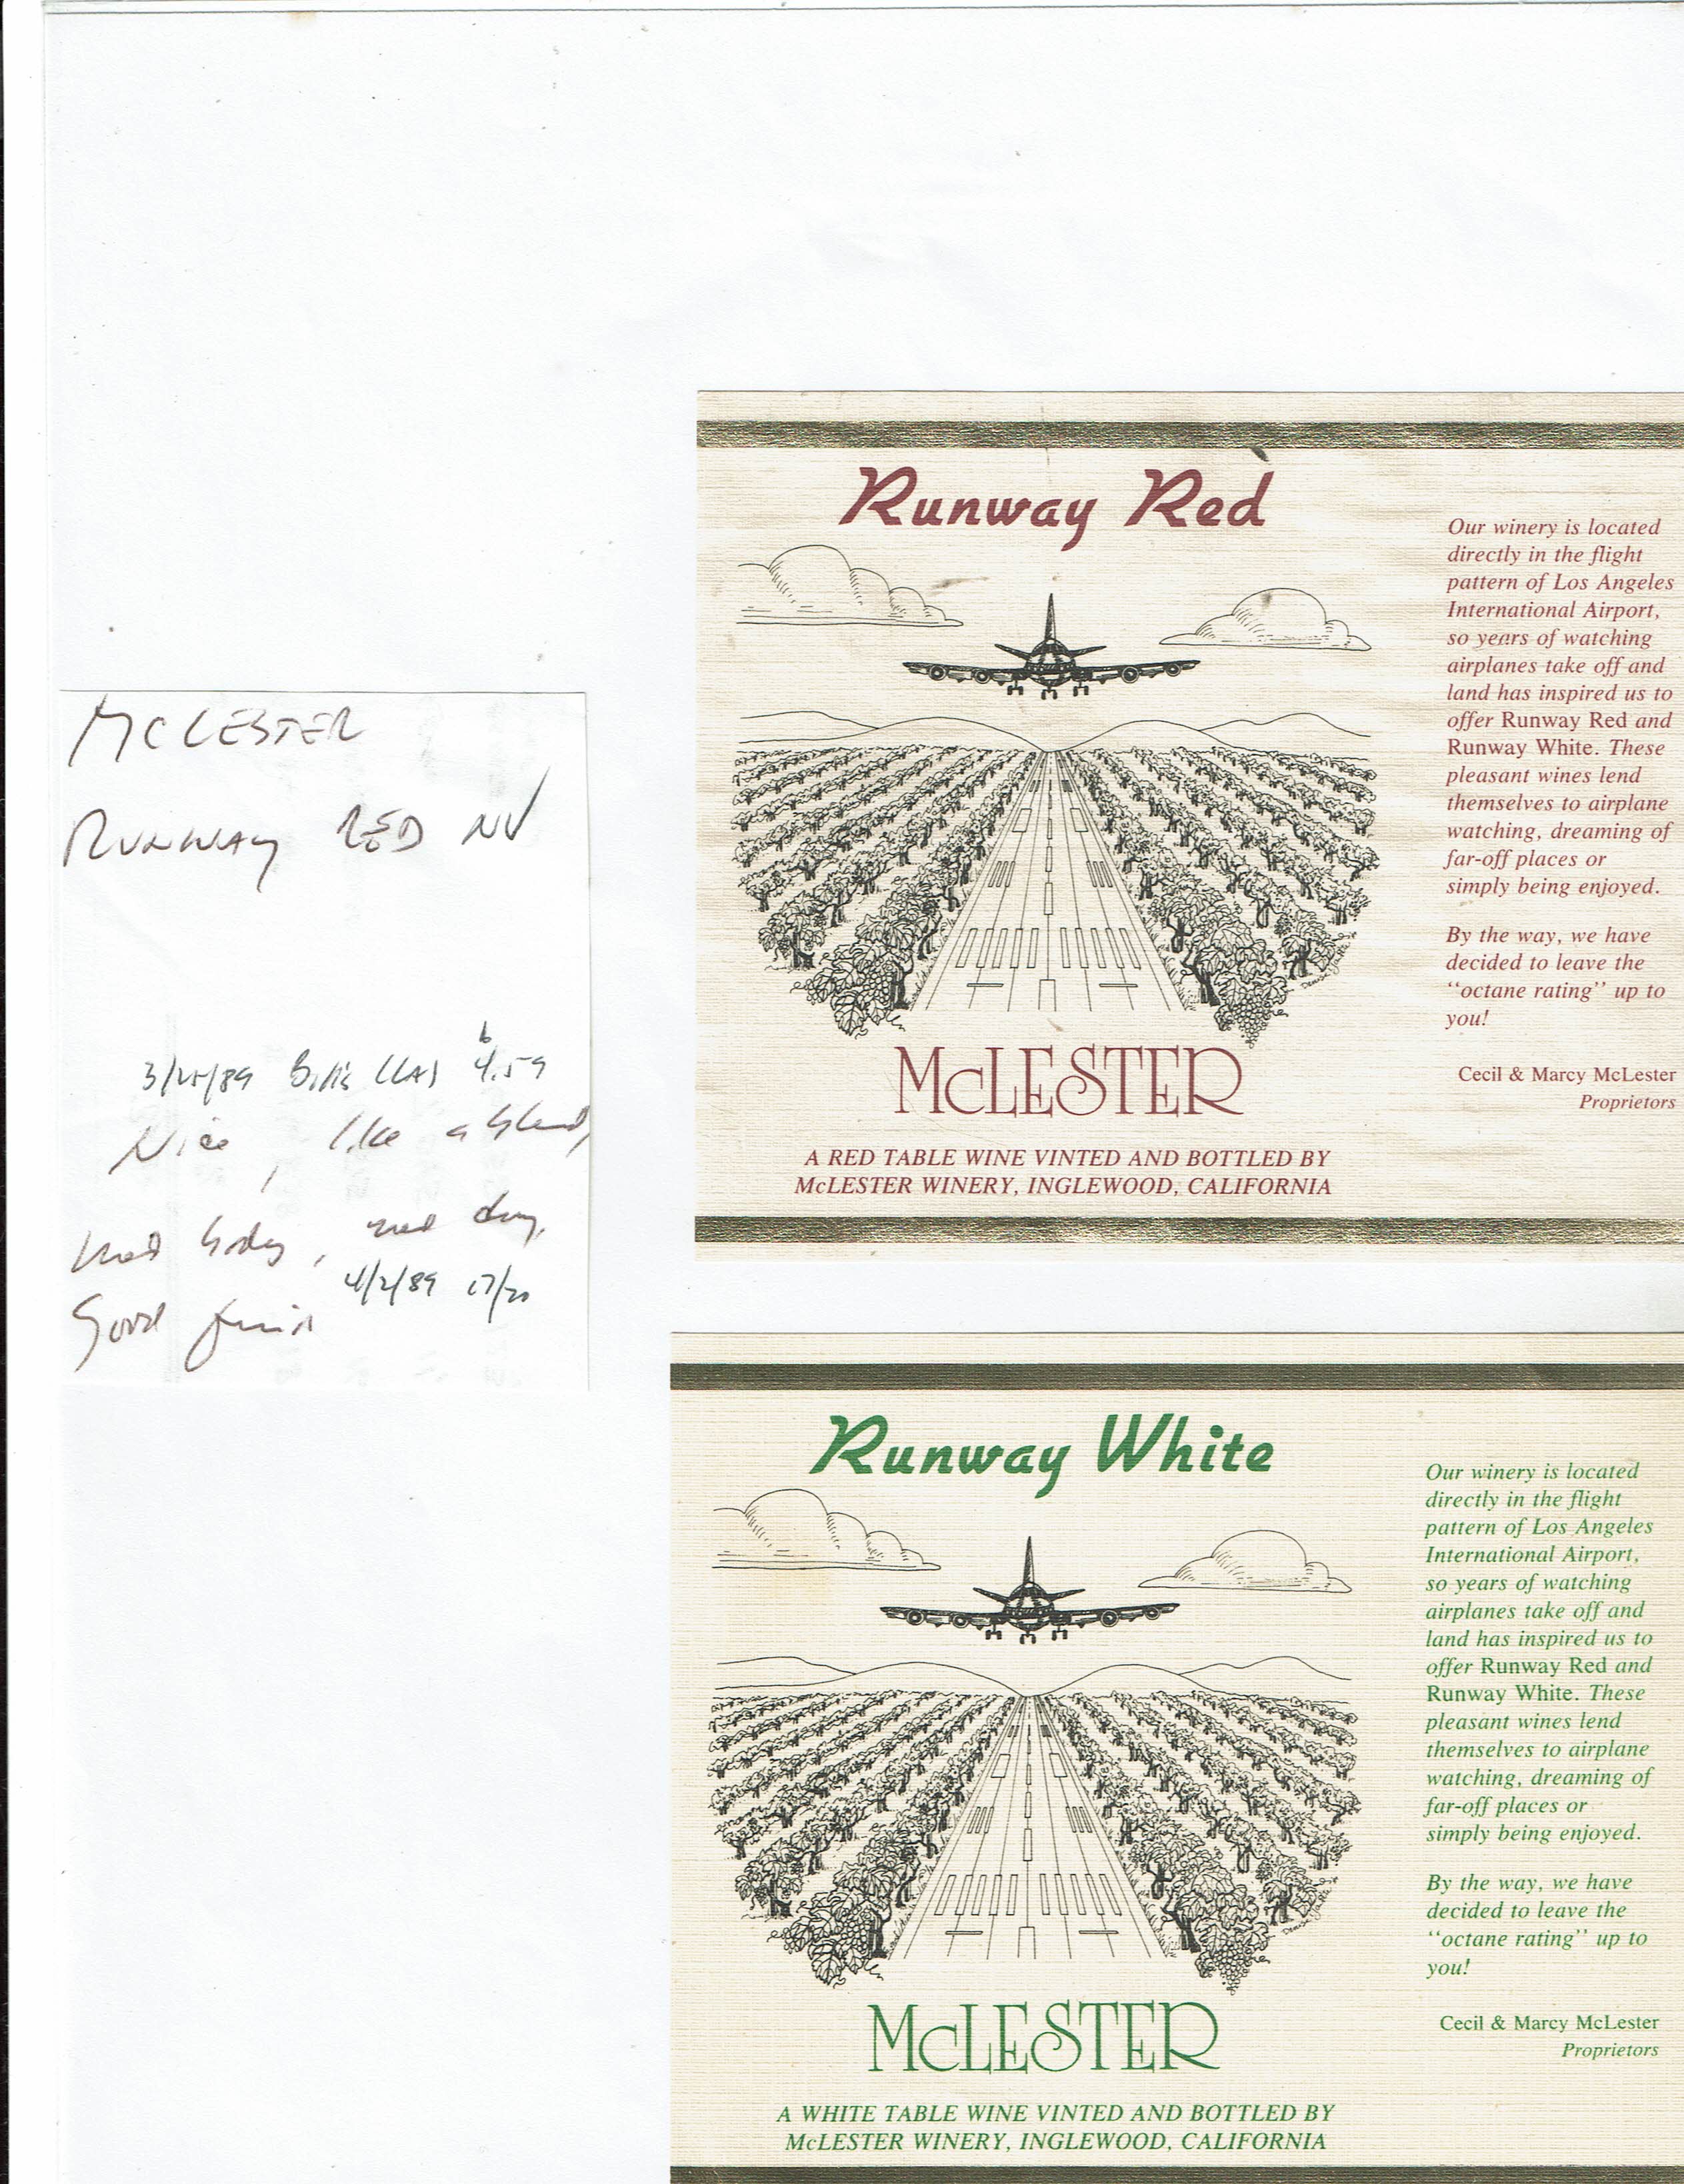 McLESTER
RUNWAY RED NV
3/25/89 Bill's (LA) 4.59
Nice, like a blend,
med body, med dry.
4/2/89 17/20
Good
Runway Red
Our winery is located
directly in the flight
pattern of Los Angeles
International Airport,
so years of watching
airplanes take off and
land has inspired us to
offer Runway Red and
Runway White. These
pleasant wines lend
themselves to airplane
watching, dreaming of
far-off places or
simply being enjoyed.
By the way, we have
decided to leave the
“octane rating” up to
you!
Cecil & Marcy McLester
Proprietors
McLESTER
A RED TABLE WINE VINTED AND BOTTLED BY
McLESTER WINERY, INGLEWOOD, CALIFORNIA
Runway White
Our winery is located
directly in the flight
pattern of Los Angeles
International Airport,
so years of watching
airplanes take off and
land has inspired us to
offer Runway Red and
Runway White. These
pleasant wines lend
themselves to airplane
watching, dreaming of
far-off places or
simply being enjoyed.
By the way, we have
decided to leave the
“octane rating” up to
you!
Cecil & Marcy McLester
Proprietors
McLESTER
A WHITE TABLE WINE VINTED AND BOTTLED BY
McLESTER WINERY, INGLEWOOD, CALIFORNIA